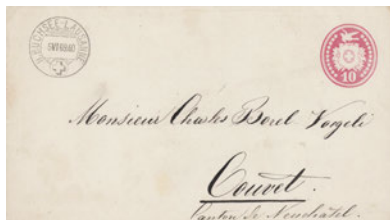 H.BUCHSEE-LAUSANNE
10
Monsieur Charles Borel Vougeli
Couvet.
Canton de Neuchâtel.